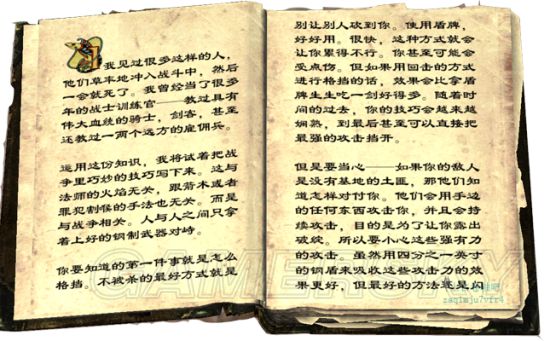 我见过很多这样的人，
他们草率地冲入战斗中，然后
一会就死了。我曾经当了很多
年的战士训练官——教过具有
伟大血统的骑士，剑客，甚至
还教过一两个远方的雇佣兵。
运用这份知识，我将试着把战
争里巧妙的技巧写下来。这与
法师的火焰无关，跟背木或者
罪犯割喉的手法也无关。而是
与战争相关。人与人之间只拿
着上好的钢制武器对峙。
你要知道的第一件事就是怎么
格挡。不被杀的最好方式就是
别让别人砍到你。使用盾牌，
好好用。很快，这种方式就会
让你累得不行。你甚至可能会
受点伤。但如果用回击的方式
进行格挡的话，效果会比拿盾
牌生生吃一剑好得多。随着时
间的过去，你的技巧会越来越
娴熟，到最后甚至可以直接把
最强的攻击挡开。
但是要当心——如果你的敌人
是没有基地的土匪，那他们知
道怎样对付你。他们会用手边
的任何东西攻击你，并且会持
续攻击，目的是为了让你露出
破绽。所以要小心这些强有力
的攻击。虽然用四分之一英寸
的钢盾来吸收这些攻击力的效
果更好，但最好的方法还是闪
GAMERSKY
zaqimju7vfr4